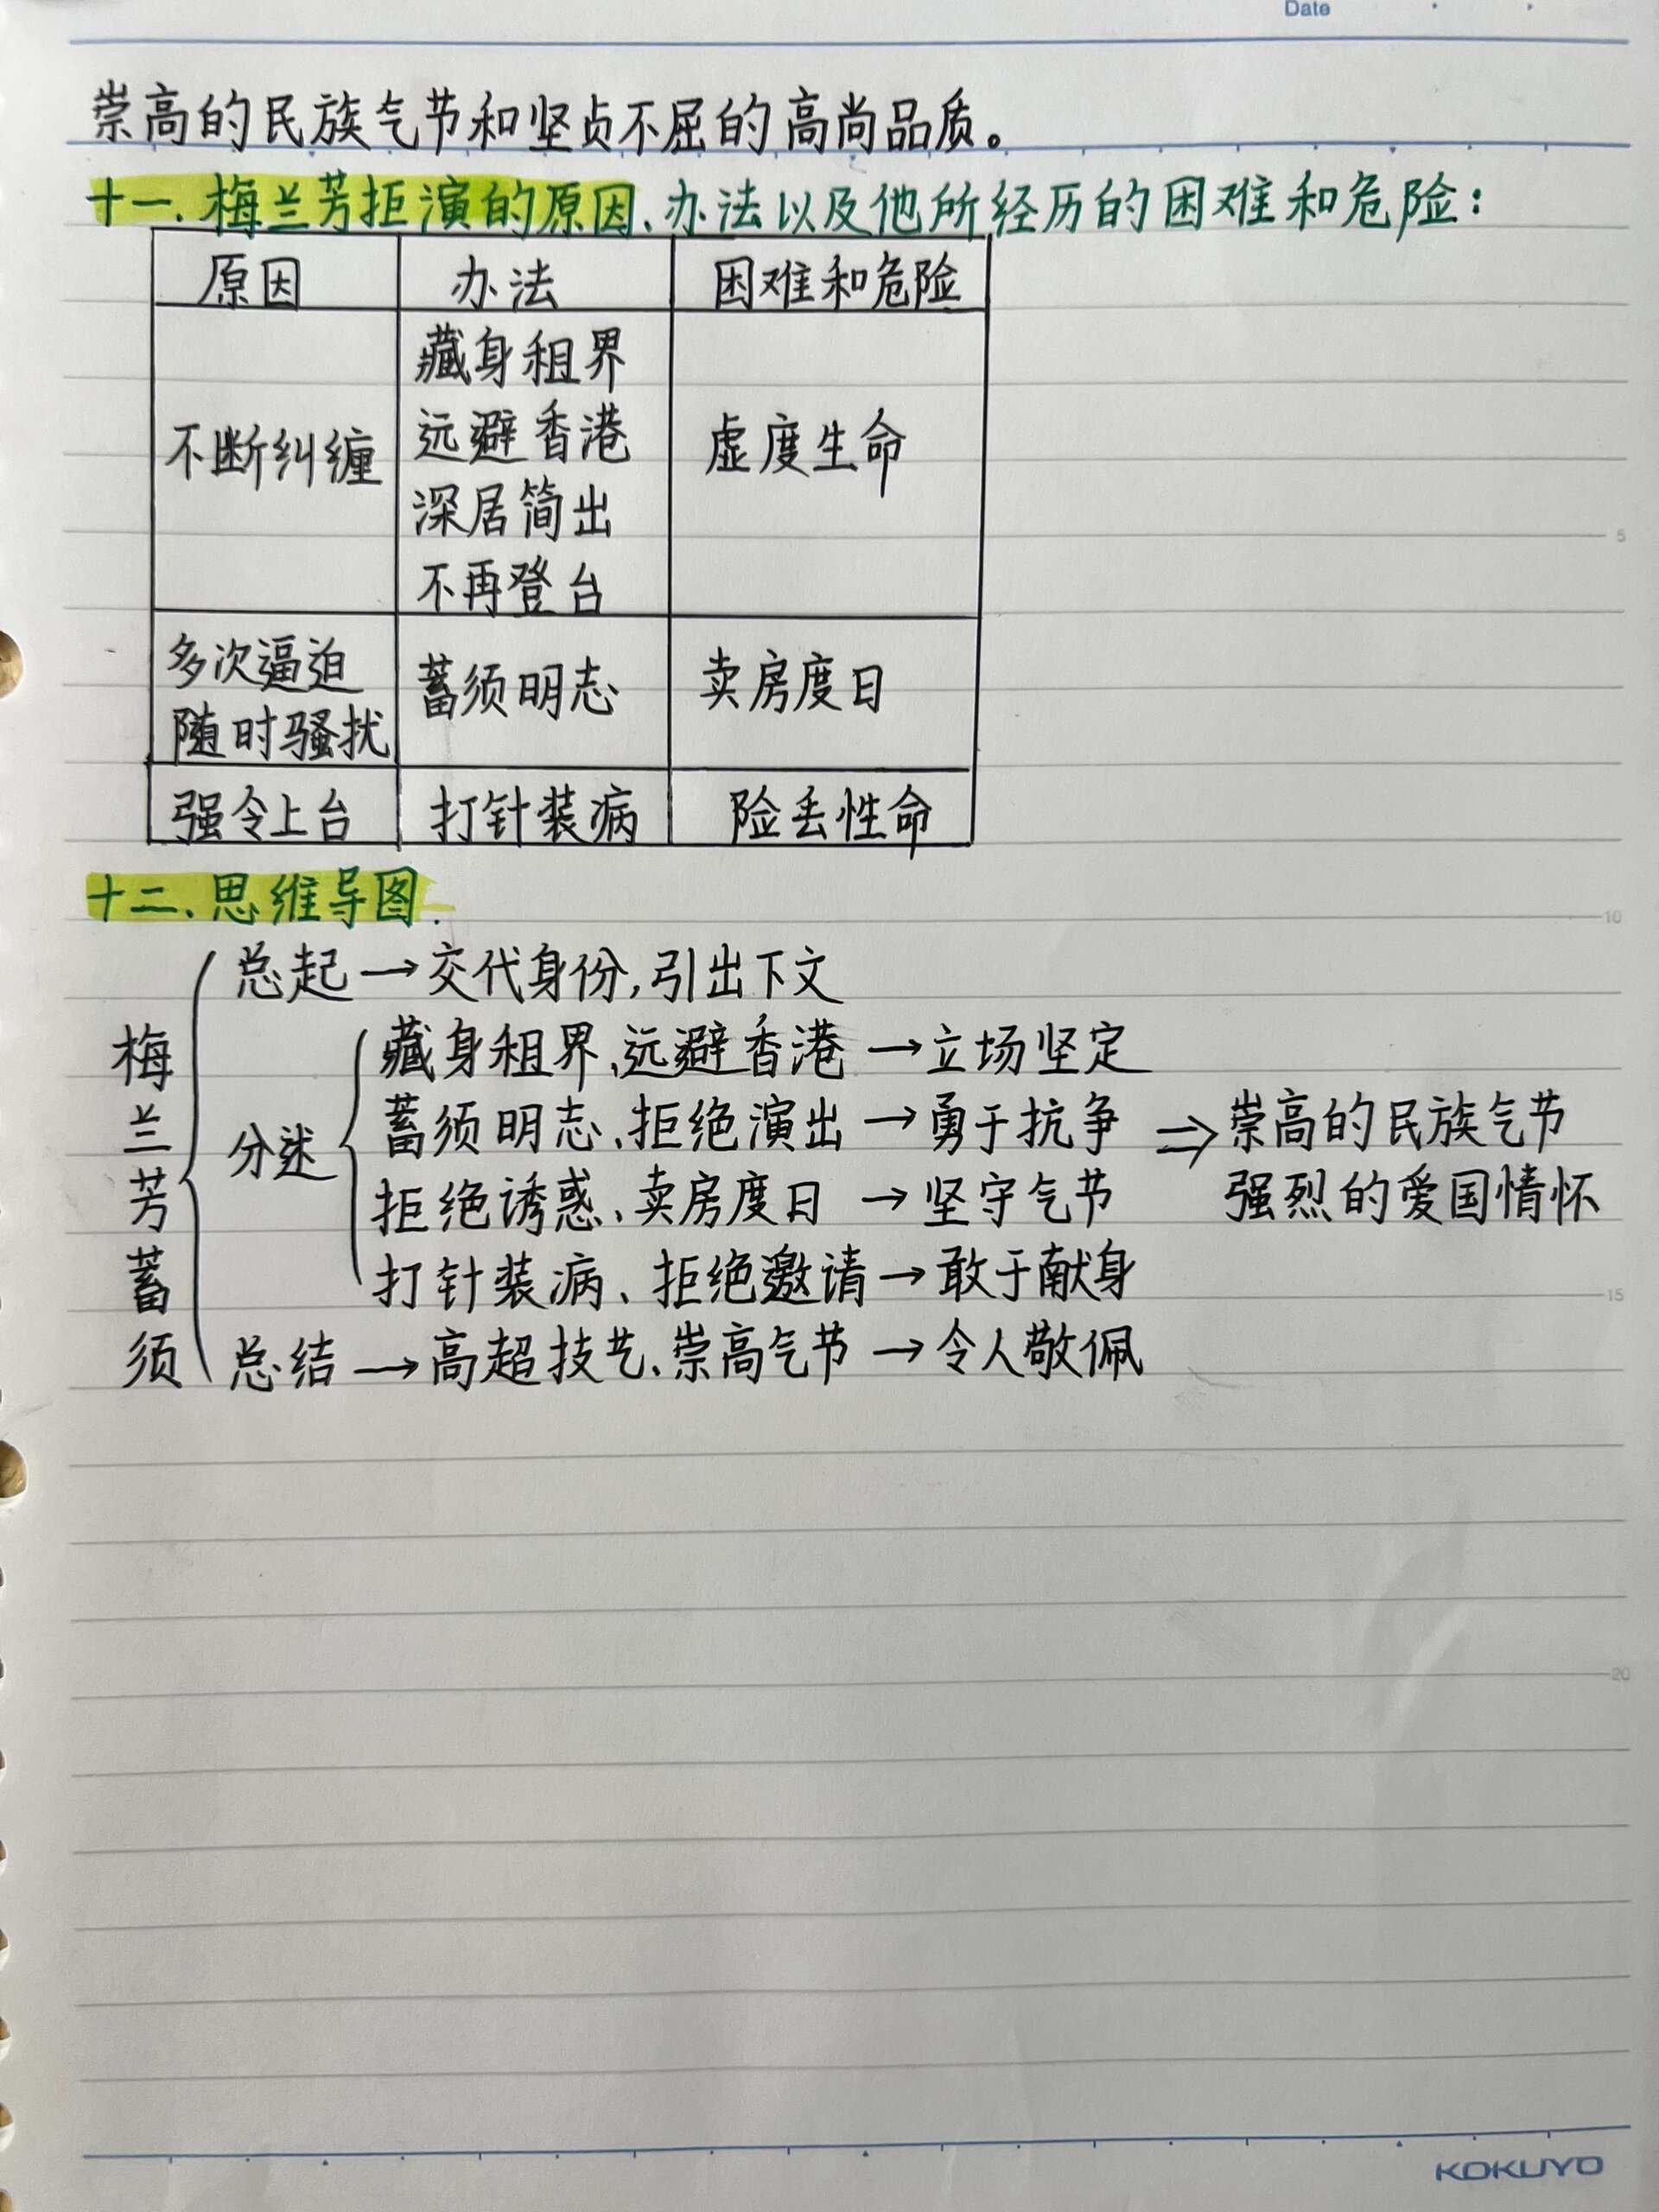 Date
崇高的民族气节和坚贞不屈的高尚品质。
十一、梅兰芳拒演的原因、办法以及他所经历的困难和危险：
原因 办法 困难和危险
不断纠缠
藏身租界
远避香港
深居简出
不再登台
虚度生命
多次逼迫
随时骚扰
蓄须明志
卖房度日
强令上台 打针装病 险丢性命
十二、思维导图.
梅兰芳蓄须
总起→交代身份,引出下文
分述
藏身租界、远避香港→立场坚定
蓄须明志、拒绝演出→勇于抗争
拒绝诱惑、卖房度日→坚守气节
打针装病、拒绝邀请→敢于献身
⇒崇高的民族气节
强烈的爱国情怀
总结→高超技艺、崇高气节→令人敬佩
5
10
15
20
KOKUYO